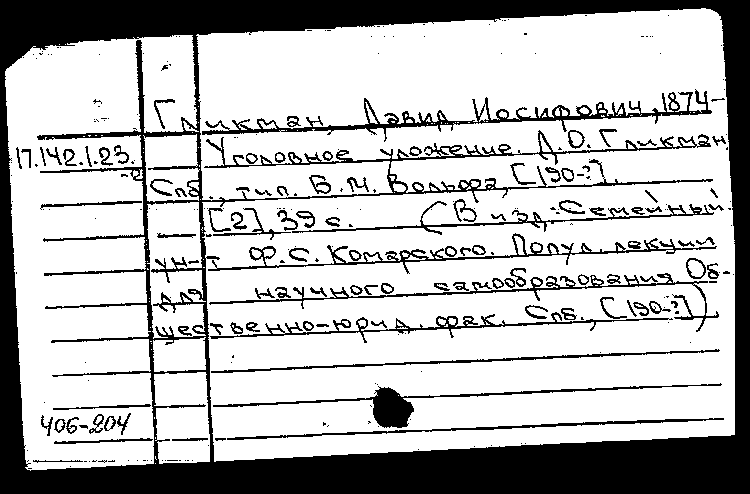 Гликман, Давид Иосифович, 1874-
17.142.1.23. Уголовное уложение. Д.О. Гликман
-2 Спб., тип. В.М. Вольфа, [190-?].
[2], 39 с. (В изд.: Семейный
ун-т Ф.С. Комарского. Попул. лекции
для научного самообразования Об-
щественно-юрид. фак. Спб., [190-?])
406-204